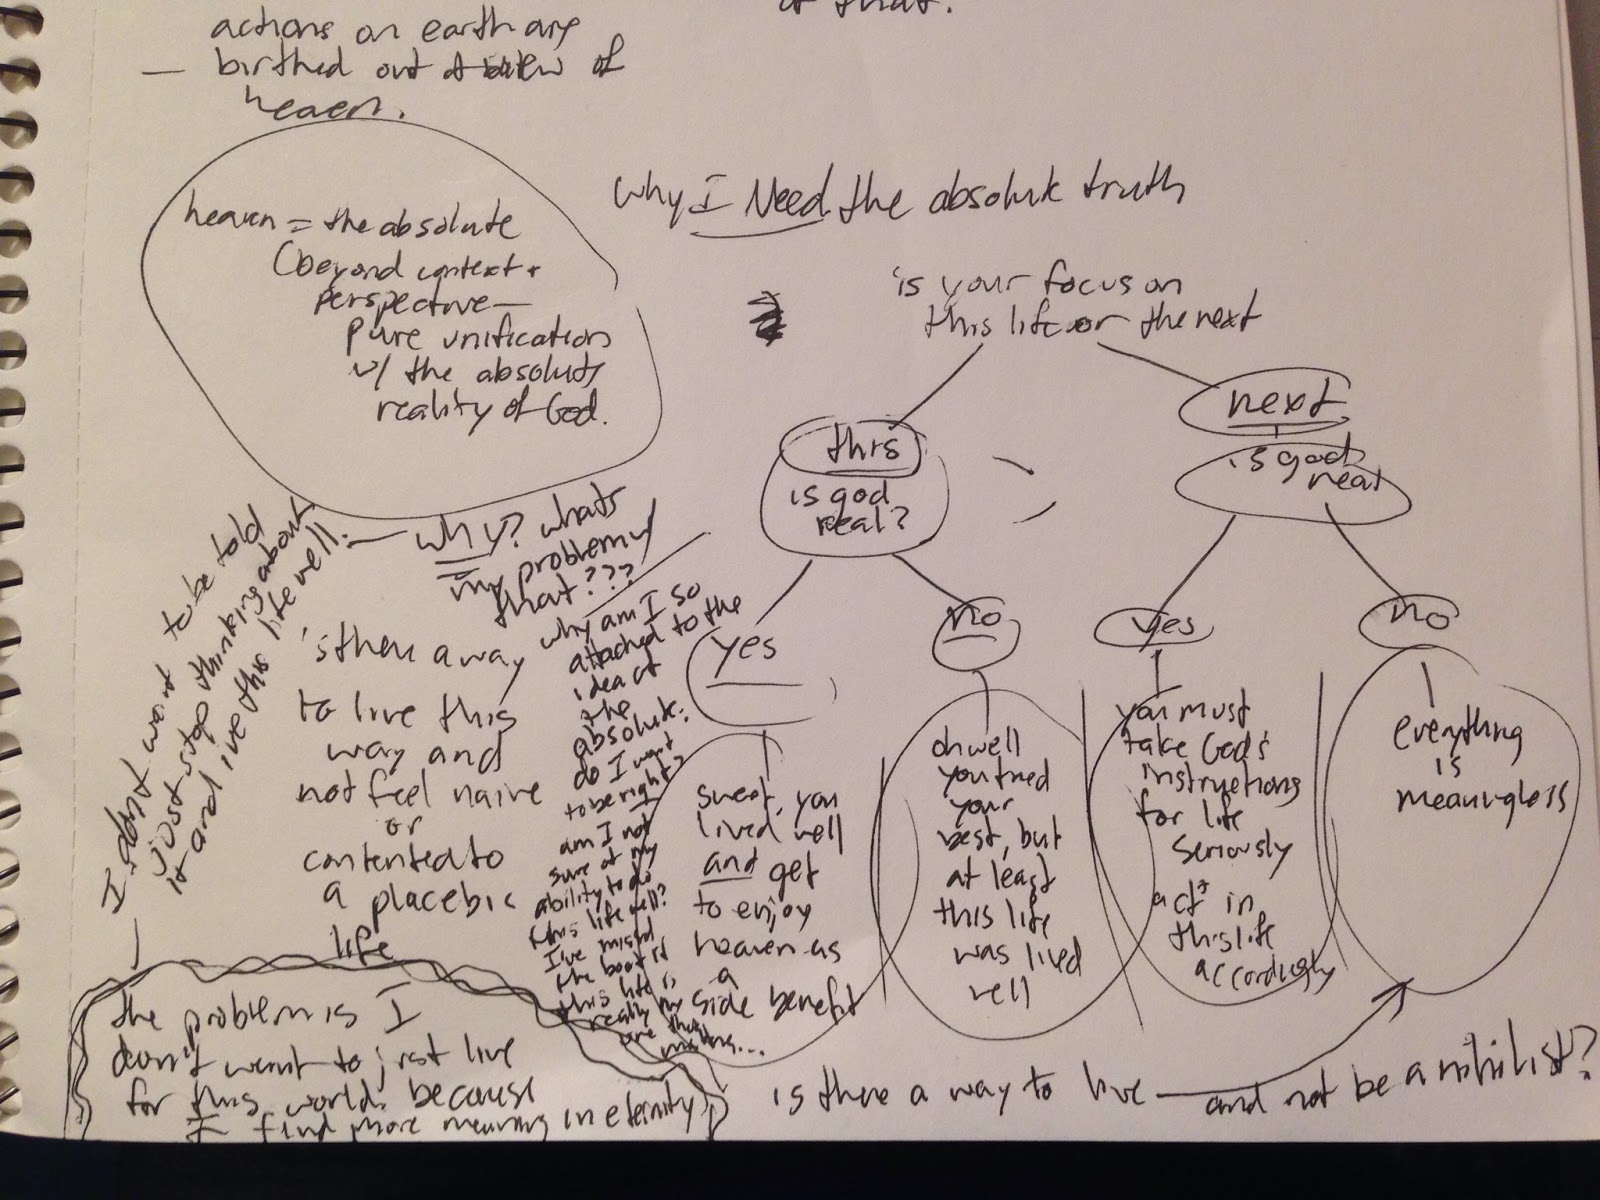 it that.
actions on earth are
— birthed out of view of
heaven.
heaven = the absolute
(beyond context +
perspective —
pure unification
w/ the absolute
reality of God.
Why I Need the absolute truth
is your focus on
this life or the next
this
is god
real?
next
is god
real
yes
no
yes
no
sweet, you
lived well
and get
to enjoy
heaven as
a
side benefit
oh well
you tried
your
best, but
at least
this life
was lived
well
you must
take God's
instructions
for life
seriously
act in
this life
accordingly
everything
is
meaningless
is there a way to live — and not be a nihilist?
I don't want to be told
just stop thinking about
it and live this life well. —
why? whats
my problem w/
that???
is there a way
to live this
way and
not feel naive
or
contented to
a placebic
life
why am I so
attached to the
idea of
the
absolute.
do I want
to be right?
am I not
sure of my
ability to do
this life well?
I've missed
the boat if
this life is
really my
are
the problem is I
don't want to just live
for this world. because
I find more meaning in eternity